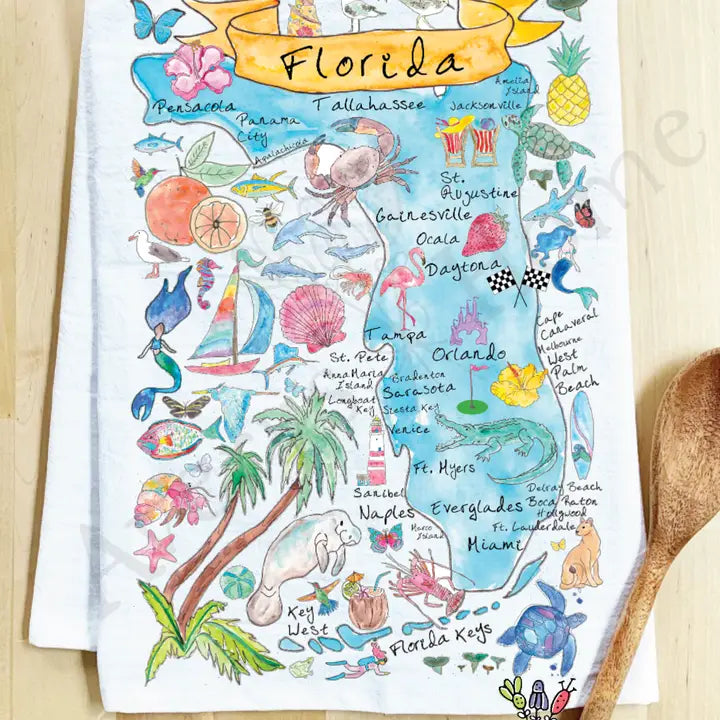 Florida
Amelia
Island
Pensacola
Tallahassee
Jacksonville
Panama
City
Apalachicola
St.
Augustine
Gainesville
Ocala
Daytona
Cape
Canaveral
Tampa
Orlando
Melbourne
St. Pete
West
Palm
Beach
Anna Maria
Island
Bradenton
Sarasota
Longboat
Key
Siesta Key
Venice
Ft. Myers
Sanibel
Delray Beach
Boca Raton
Hollywood
Ft. Lauderdale
Everglades
Naples
Marco
Island
Miami
Key
West
Florida Keys